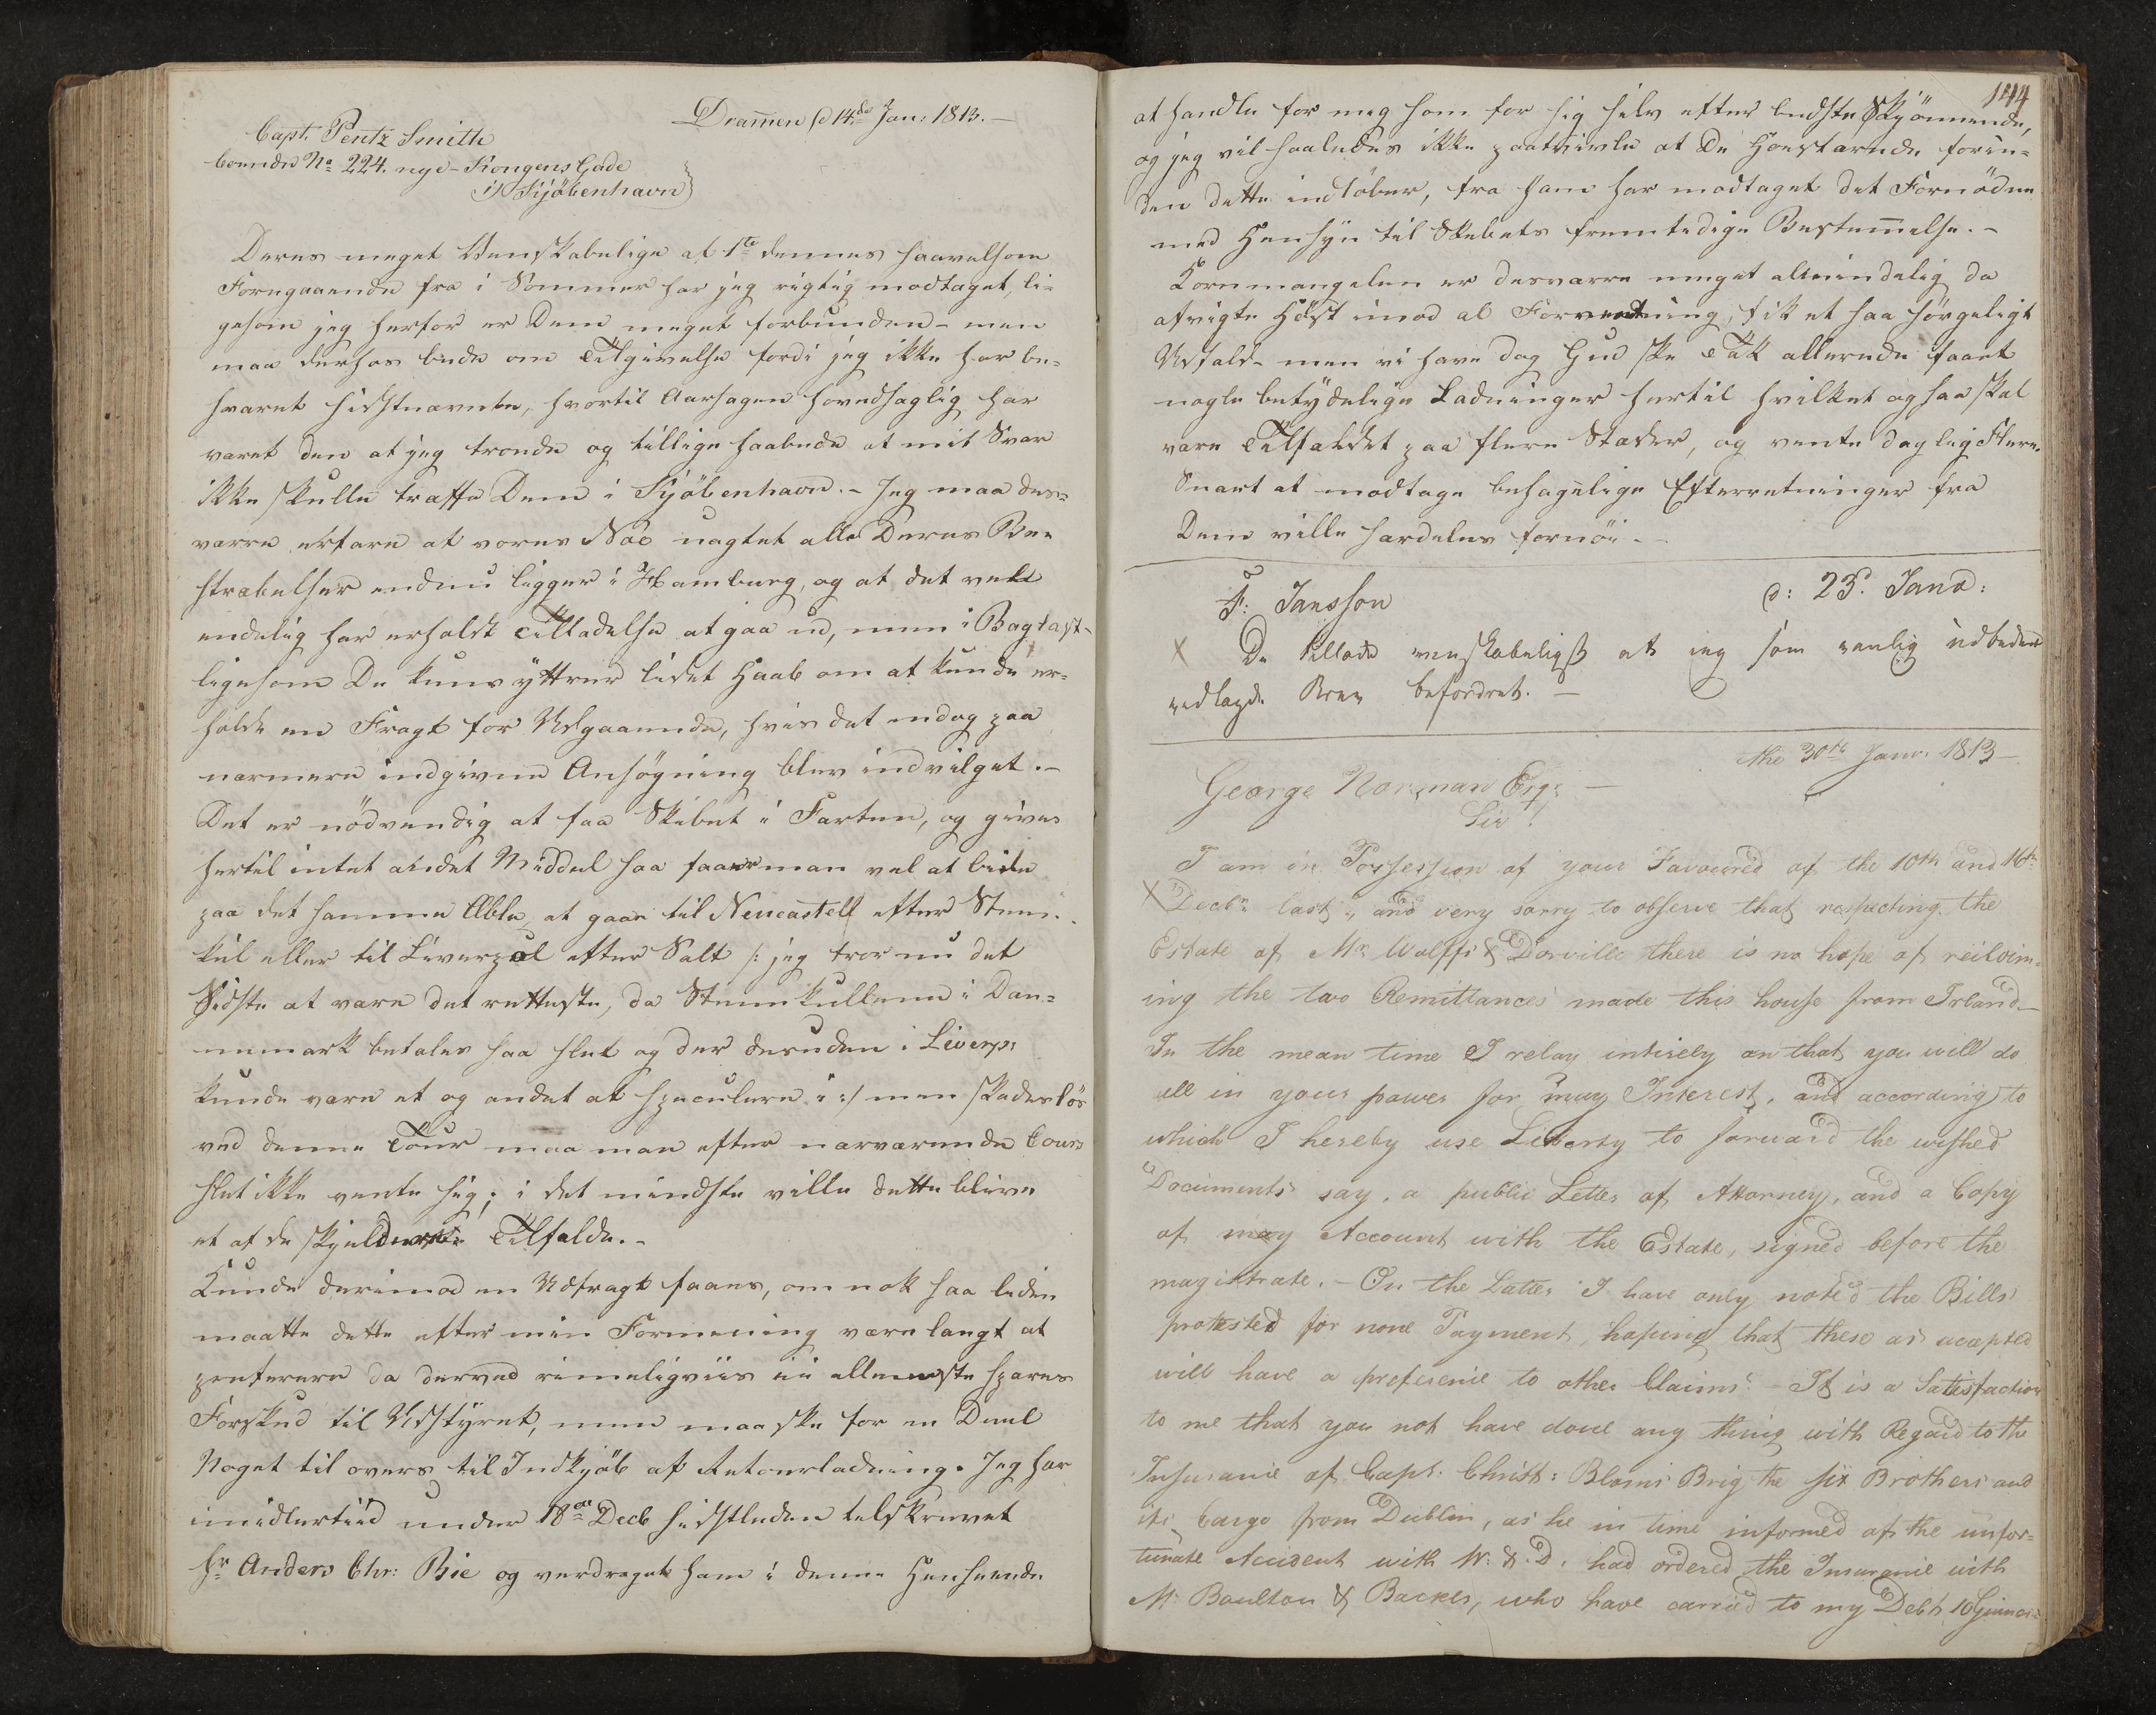 Dramen d 14de Jan: 1813.-
Capt. Pentz Smith
boende No 224. nye-Kongens Gade
i Kjöbenhavn
Deres meget Venskabelige af 1te dennes saavelsom
Foregaaende fra i Sommer har jeg rigtig modtaget, li-
gesom jeg herfor er Dem meget forbunden - men
maa derhos bede om Tilgivelse fordi jeg ikke har be-
svaret sidstnævnte, hvortil Aarsagen hovedsaglig har
været den at jeg troede og tillige haabede at mit Svar
ikke skulle træffe Dem i Kjöbenhavn.- Jeg maa des-
værre erfare at vores Noe uagtet alle Deres Be-
stræbelser endnu ligger i Hamburg, og at det vel
endelig har erholdt Tilladelse at gaa ud, men i Baglast-
ligesom De kuns yttrer lidet Haab om at kunde er-
holde en Fragt for Udgaaende, hvis det endog paa
nærmere indgivne Ansögning blev indvilget.-
Det er nödvendig at faa Skibet i Farten, og gives
hertil intet andet Middel saa faaer man vel at bide
paa det samme Æble at gaae til Neucastell efter Steen-
kul eller til Liverpol efter Salt /: jeg tror nu det
Sidste at være det retteste, da Steenkullene i Dan-
nemark betales saa slet og der desuden i Liverp:
kunde være et og andet at speculere i :/ men skadeslös
ved denne Tour maa man efter nærværende Cours
slet ikke vente sig; i det mindste ville dette blive
et af de skjeldneste Tilfælde.-
Kunde derimod en Udfragt faaes, om nok saa liden
maatte dette efter min Formening være langt at
preferere da derved rimeligviis ei allene ste spares
Forskud til Udstyret, men maaske for en Deel
Noget til overs til Indkjöb af Retourladning. Jeg har
imidlertiid under 18de Decb sidstleden tilskrevet
Hr Anders Chr: Bie og verdraget ham i denne Henseende
144
at handle for mig som for sig selv efter bedste Skjönnende,
og jeg vil saaledes ikke paatvivle at De Hoestærende forin-
den dette indlöber, fra ham har modtaget det Fornödne
med Hensyn til Skibets fremtidige Bestemelse.-
Kornmangelen er desværre meget almindelig da
afvigte Höst imod al Forventning, fik et saa sörgeligt
Udfald- men vi have dog Gud ske Tak allerede faaet
nogle betydelige Ladninger hertil hvilket ogsaa skal
være Tilfældet paa flere Stæder, og vente daglig flere.
Snart at modtage behagelige Efterretninger fra
Dem ville særdeles fornöi -
F: Jansson d: 23. Janv:
X De tillade venskabeligst at jeg som vanlig udbeder
vedlagde Brev befordret. -
the 30th Janr. 1813 -
George Norman Esq: -
Sir!
I am in Possession of your Favoured of the 10th and 16th
X Decbr last, and very sorry to observe that respecting the
Estate of Mrs Wolffs & Dorville there is no hope of reiloim-
ing the two Remittances made this house from Irland.-
In the mean time I relay intirely on that you will do
all in your power for may Interest, and according to
which I hereby use Liberty to forward the wished
Documents say, a public Letter of Attorney, and a Copy
of may Account with the Estate, signed before the
magistrate. - On the Latter I have only noted the Bills
protested for none Payment, hoping that these as acepted
will have a preferenie to other Claims - It is a Satisfaction
to me that you not have done any thing with Regard to the
Insuranie of Capt: Christ: Bloms Brig the six Brothers and
its Cargo from Dublin, as he in time informed of the unfor-
tunate Accident with W: & D. had ordered the Insuranie with
Mr Boulton & Backer, who have carried to my Debt 10 Guineas